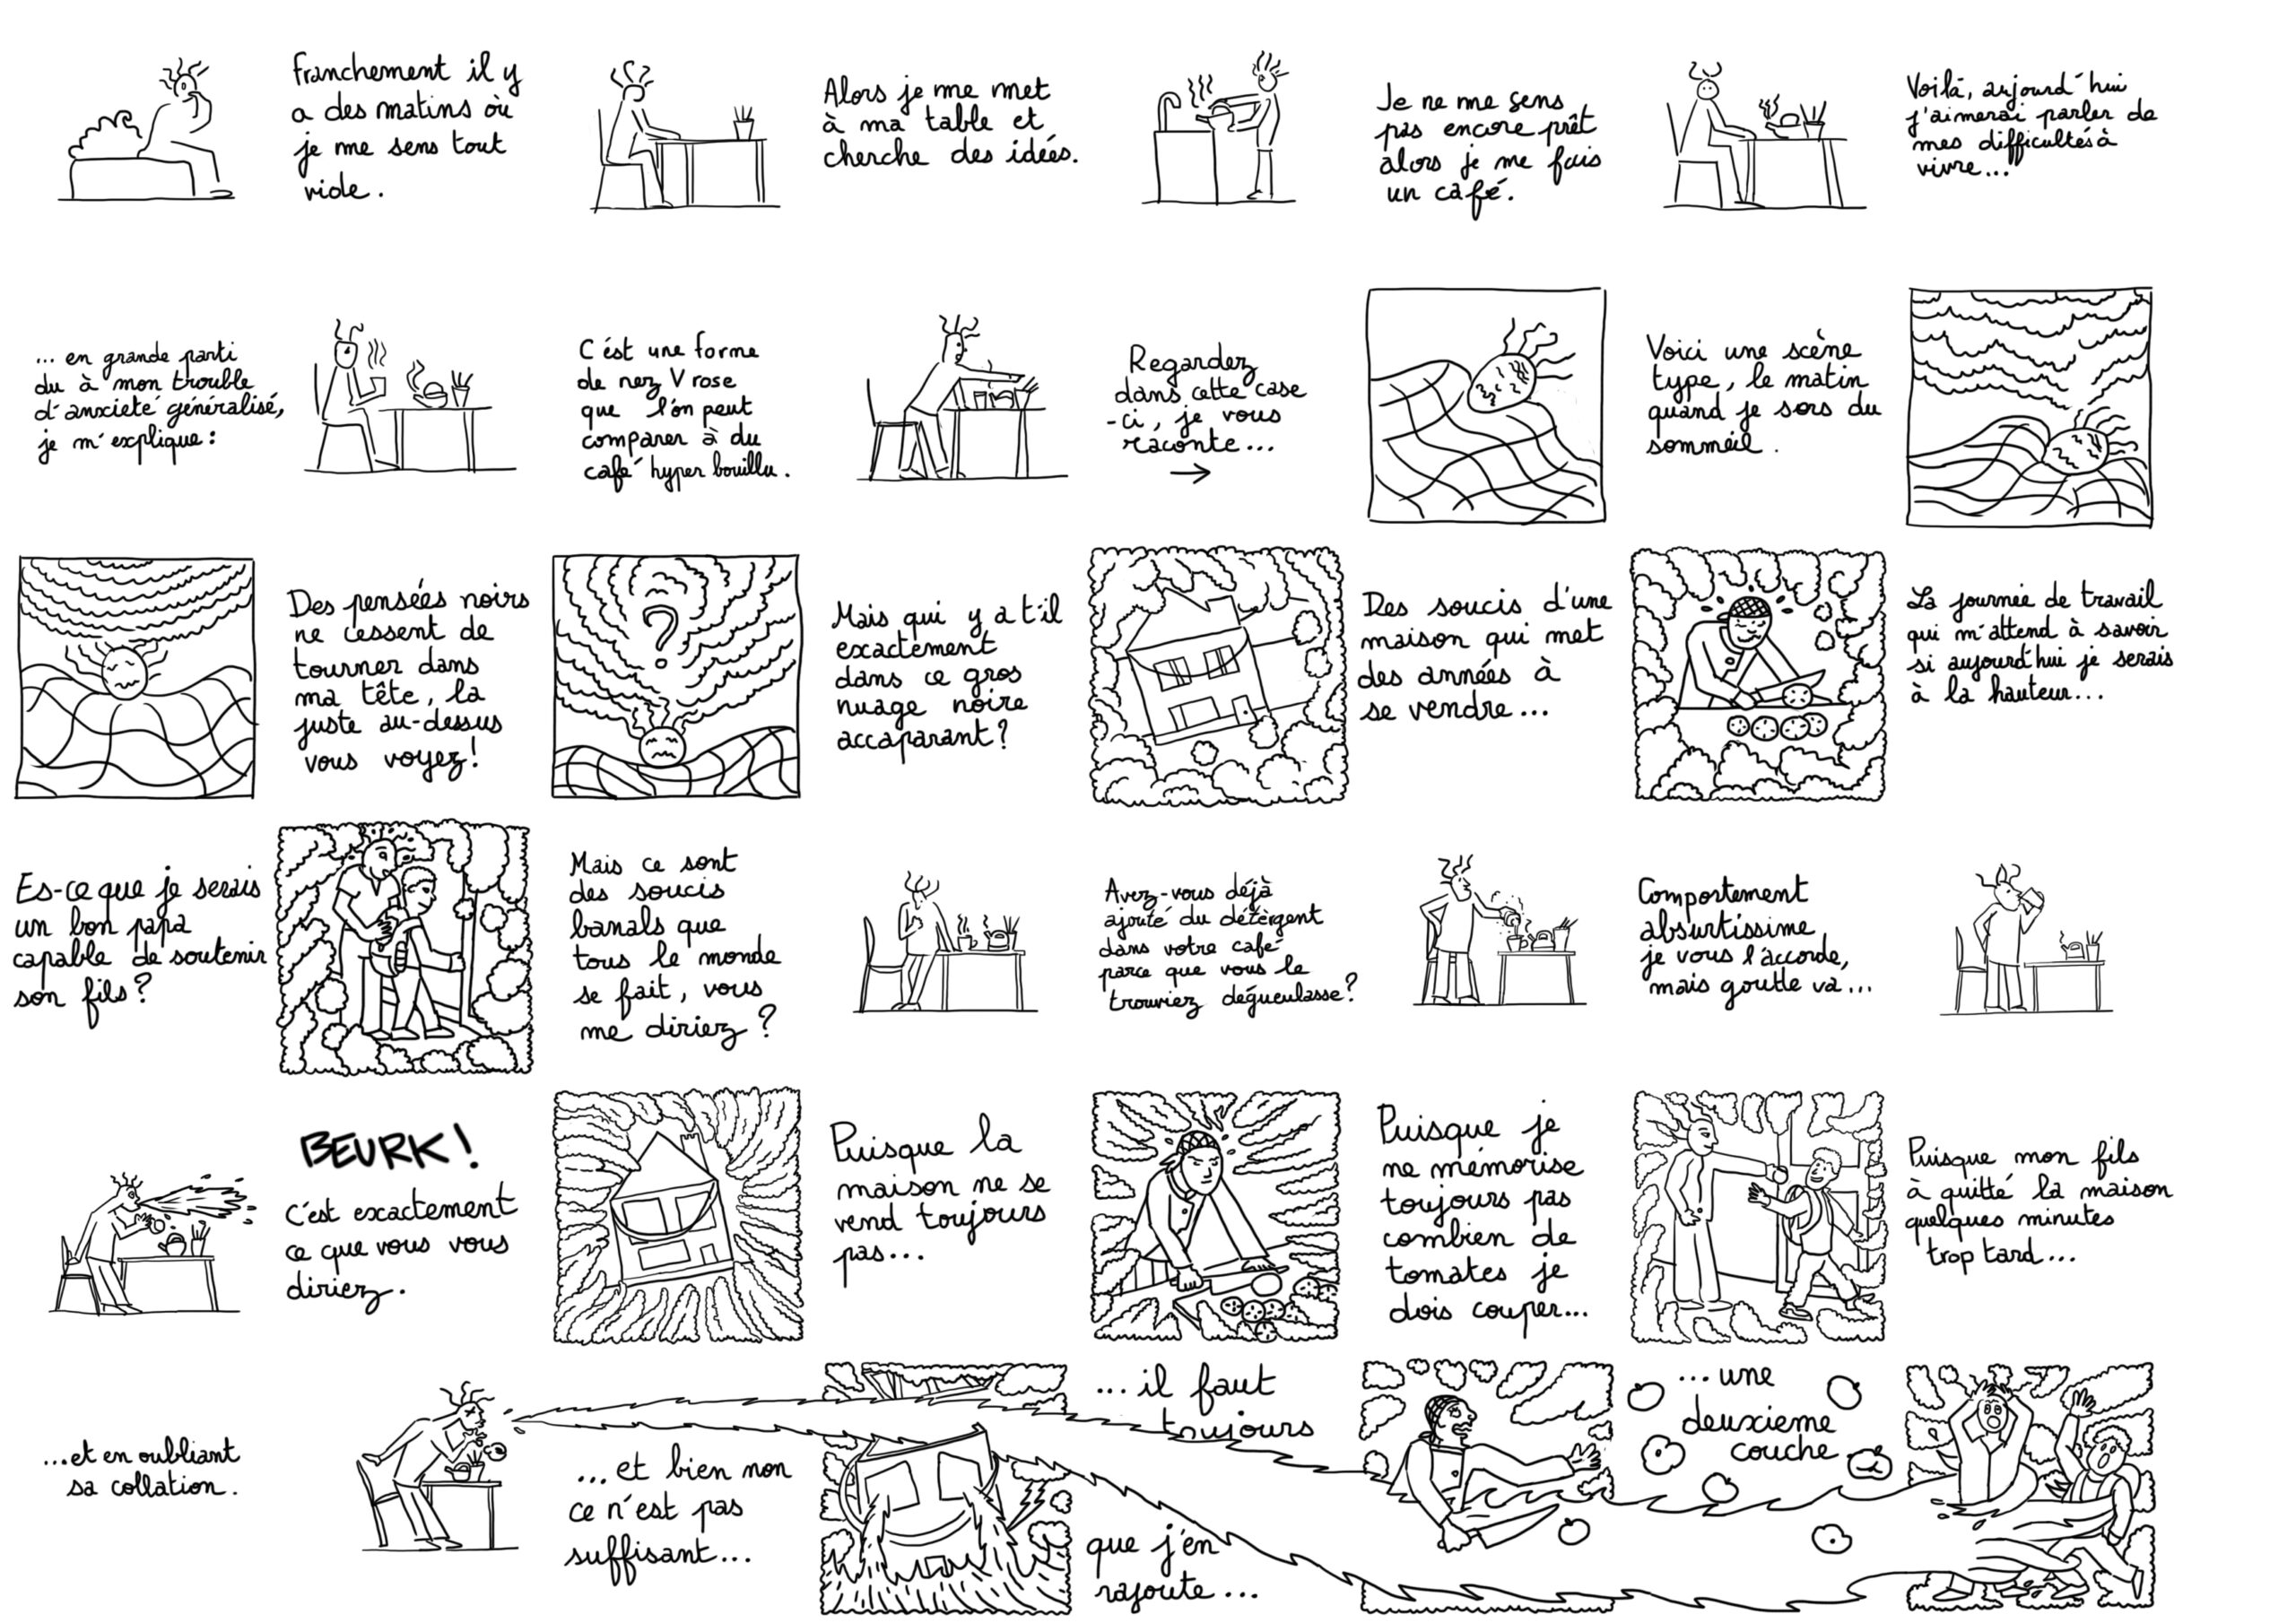 Franchement il y
a des matins où
je me sens tout
vide.
Alors je me met
à ma table et
cherche des idées.
Je ne me sens
pas encore prêt
alors je me fais
un café.
Voilà, aujourd'hui
j'aimerai parler de
mes difficultés à
vivre...
... en grande parti
du à mon trouble
d'anxieté généralisé,
je m'explique :
C'est une forme
de nez V rose
que l'on peut
comparer à du
café hyper bouillu.
Regardez
dans cette case
-ci, je vous
raconte...
→
Voici une scène
type, le matin
quand je sors du
sommeil.
Des pensées noirs
ne cessent de
tourner dans
ma tête, la
juste au-dessus
vous voyez!
?
Mais qui y a t'il
exactement
dans ce gros
nuage noire
accaparant?
Des soucis d'une
maison qui met
des années à
se vendre...
La journée de travail
qui m'attend à savoir
si aujourd'hui je serais
à la hauteur...
Es-ce que je serais
un bon papa
capable de soutenir
son fils?
Mais ce sont
des soucis
banals que
tous le monde
se fait, vous
me diriez?
Avez-vous déjà
ajouté du détergent
dans votre café
parce que vous le
trouviez dégueulasse?
Comportement
absurtissime
je vous l'accorde,
mais goutte va...
BEURK!
C'est exactement
ce que vous vous
diriez.
Puisque la
maison ne se
vend toujours
pas...
Puisque je
ne mémorise
toujours pas
combien de
tomates je
dois couper...
Puisque mon fils
à quitté la maison
quelques minutes
trop tard...
...et en oubliant
sa collation.
...et bien non
ce n'est pas
suffisant...
...il faut
toujours
que j'en
rajoute...
...une
deuxieme
couche